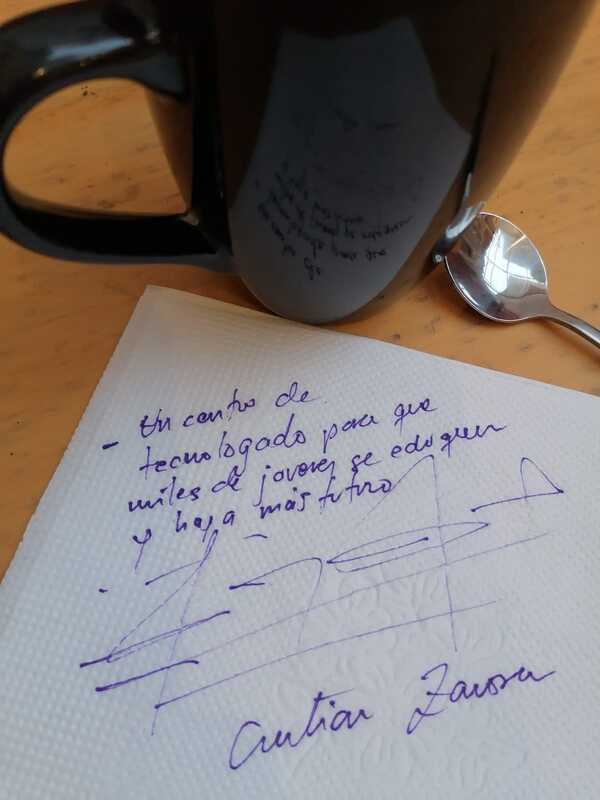 - Un centro de
tecnologado para que
miles de jovenes se eduquen
y haya más futuro
Cristian